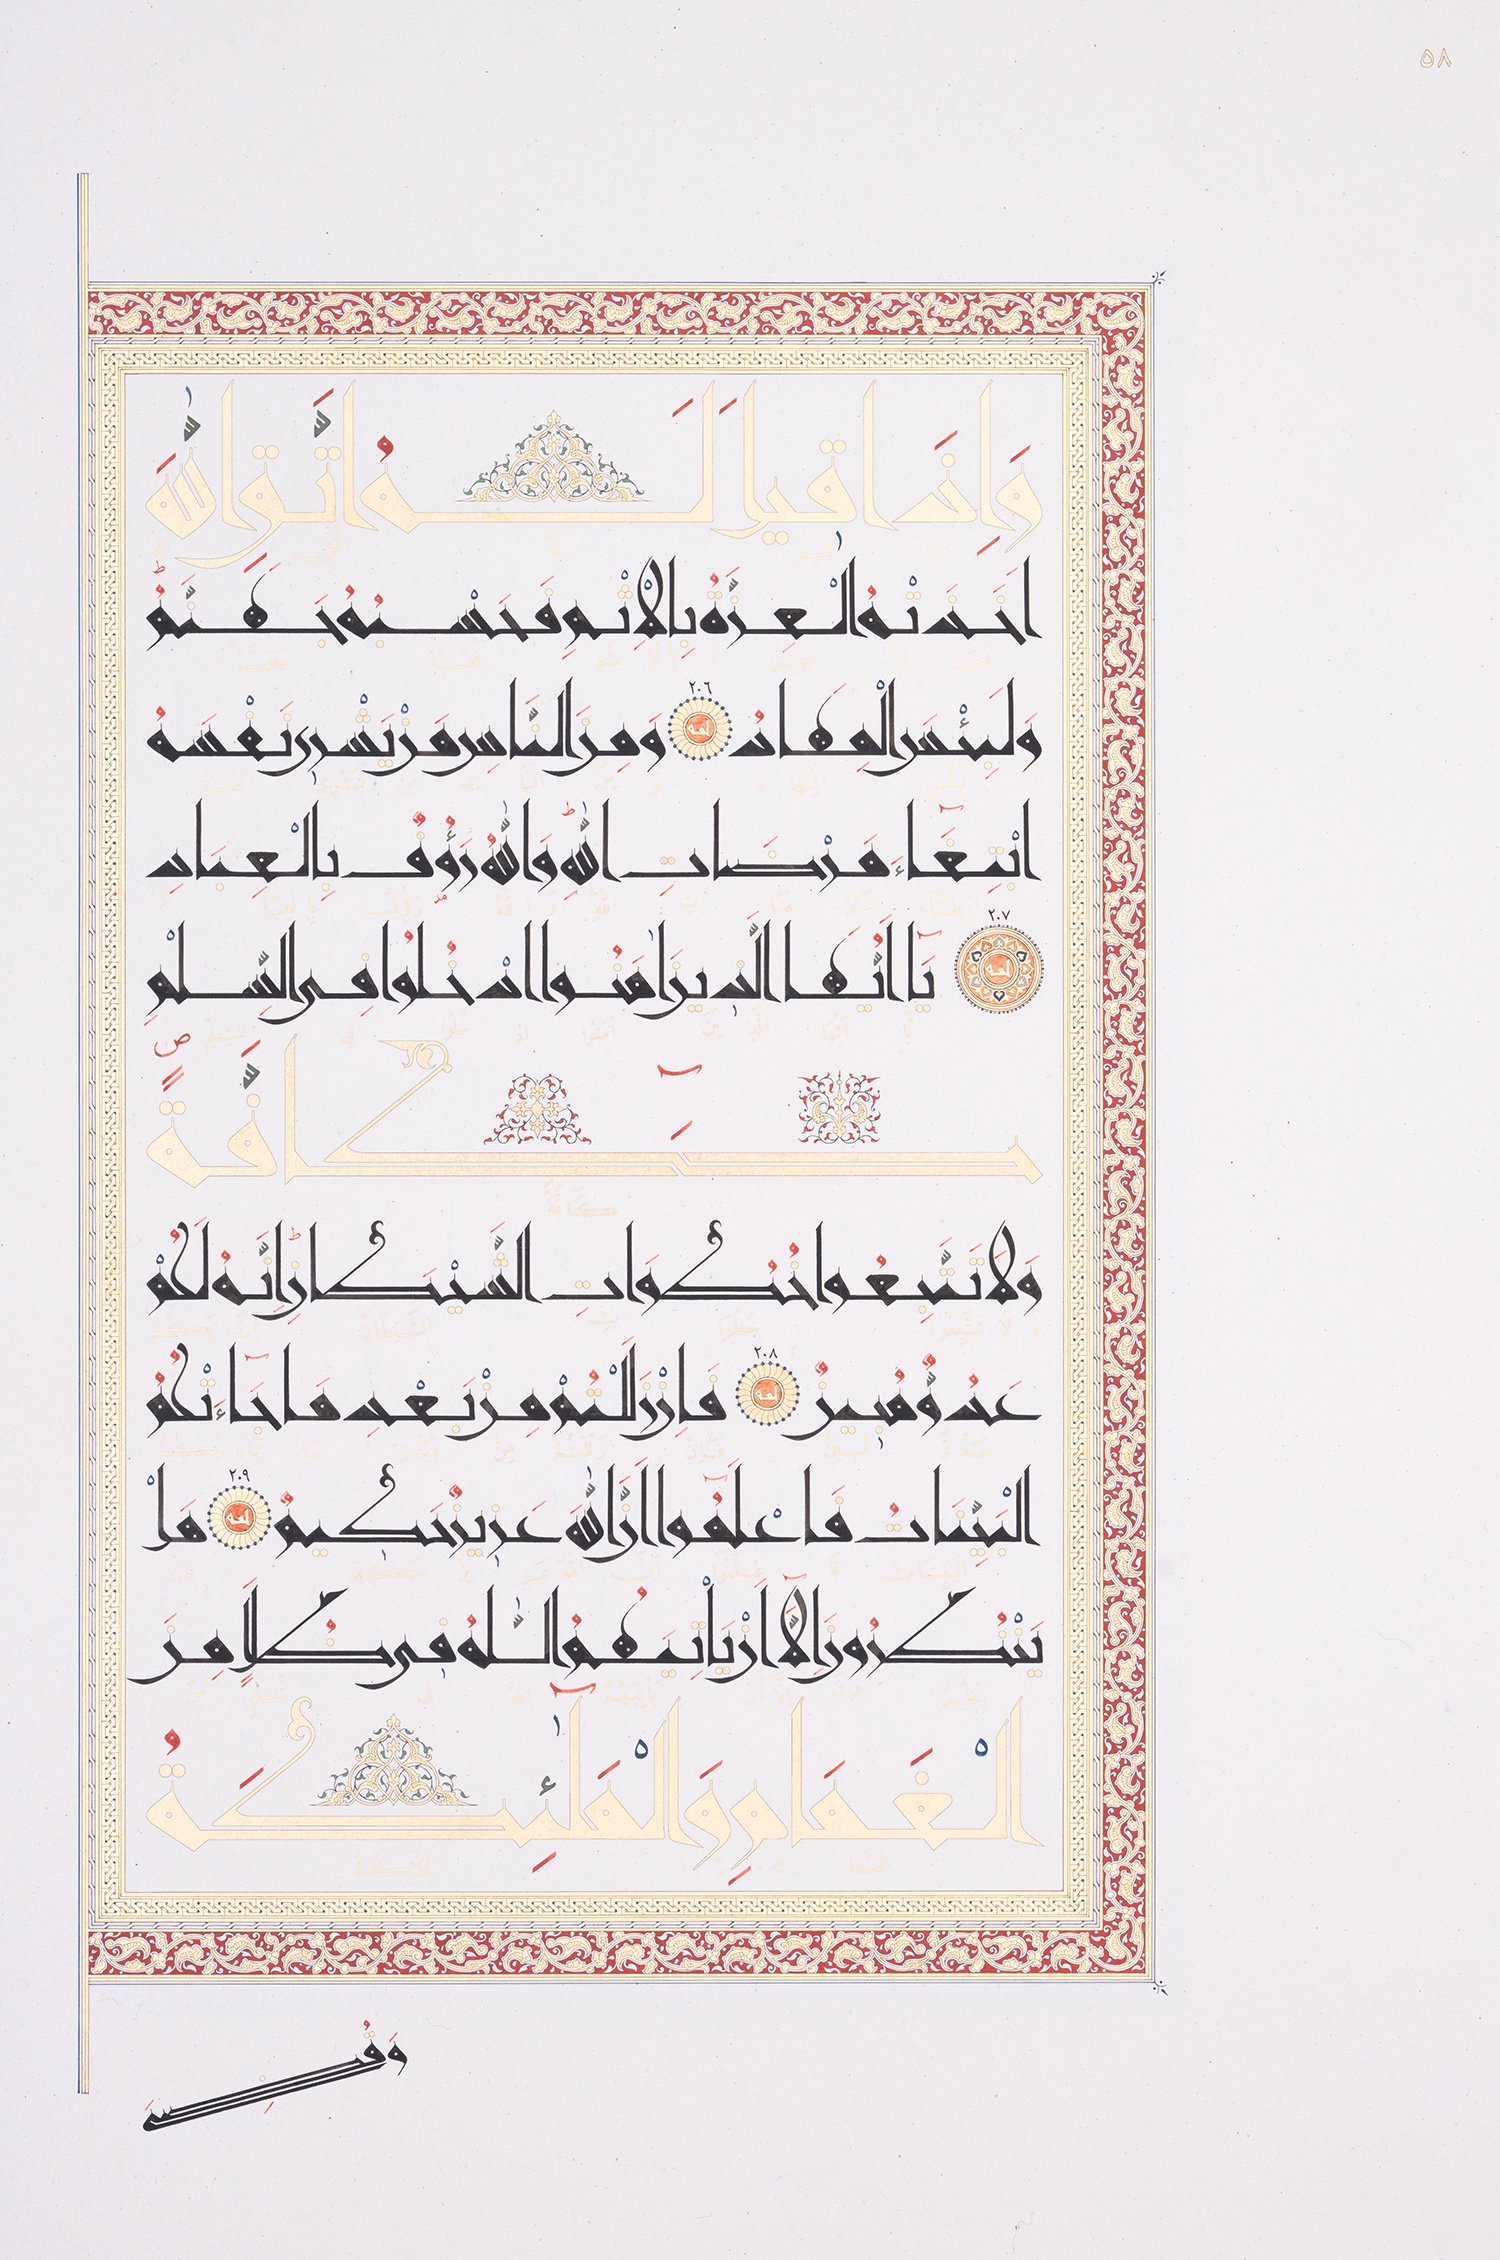 ٥٨
وَإِذَا قِيلَ لَهُ اتَّقِ اللّٰهَ
أَخَذَتْهُ الْعِزَّةُ بِالْإِثْمِ فَحَسْبُهُ جَهَنَّمُ
وَلَبِئْسَ الْمِهَادُ ٢٠٦ وَمِنَ النَّاسِ مَنْ يَشْرِي نَفْسَهُ
ابْتِغَاءَ مَرْضَاتِ اللّٰهِ وَاللّٰهُ رَؤُفٌ بِالْعِبَادِ
٢٠٧ يَا أَيُّهَا الَّذِينَ اٰمَنُوا ادْخُلُوا فِي السِّلْمِ
كَافَّةً
وَلَا تَتَّبِعُوا خُطُوَاتِ الشَّيْطَانِ إِنَّهُ لَكُمْ
عَدُوٌّ مُبِينٌ ٢٠٨ فَإِنْ زَلَلْتُمْ مِنْ بَعْدِ مَا جَاءَتْكُمُ
الْبَيِّنَاتُ فَاعْلَمُوا أَنَّ اللّٰهَ عَزِيزٌ حَكِيمٌ ٢٠٩ هَلْ
يَنْظُرُونَ إِلَّا أَنْ يَأْتِيَهُمُ اللّٰهُ فِي ظُلَلٍ مِنَ
الْغَمَامِ وَالْمَلٰئِكَةُ
وَقُضِيَ